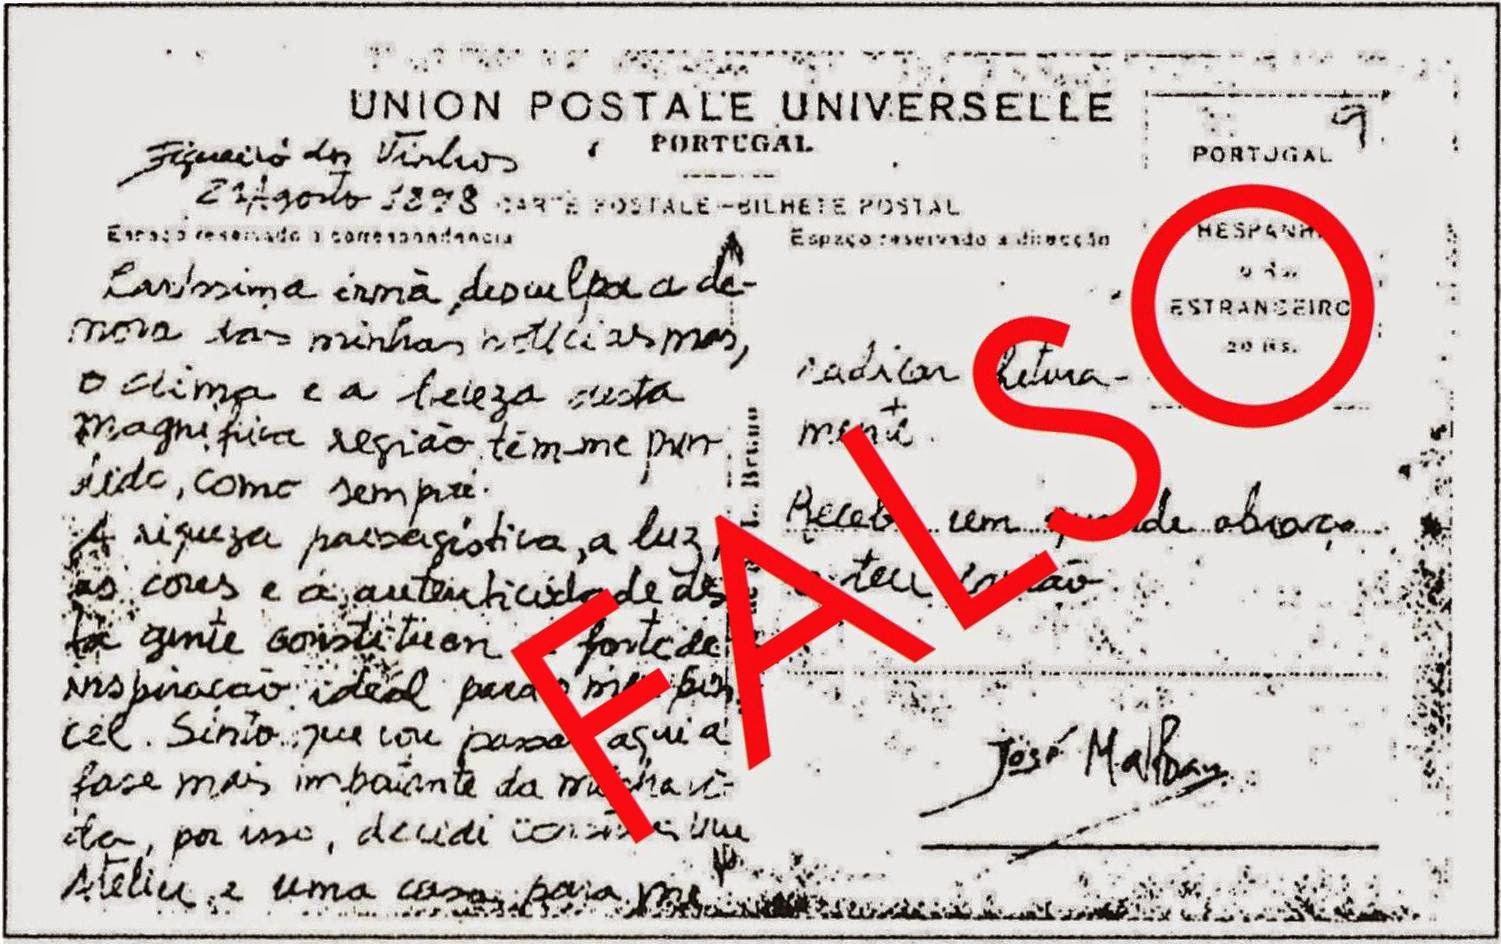 UNION POSTALE UNIVERSELLE
PORTUGAL
Figueiró dos Vinhos
Agosto 1898
CARTE POSTALE - BILHETE POSTAL
Espaço reservado a correspondencia
Caríssima irmã, desculpa a de-
mora das minhas notícias mas,
o clima e a beleza desta
magnífica região, têm-me pren-
dido, como sempre.
A riqueza paisagística, a luz,
as cores e a autenticidade des
ta gente constituem a fonte de
inspiração ideal para o meu pin
cel. Sinto que vou passar aqui a
fase mais importante da minha vi-
da, por isso, decidi construir um
Atelier e uma casa para me
Bruno
Espaço reservado a direcção
radicar futura-
mente.
Recebe um grande abraço
o teu irmão
José Malhoa
PORTUGAL
HESPANHA
Rs.
ESTRANGEIRO
20 Rs.
FALSO